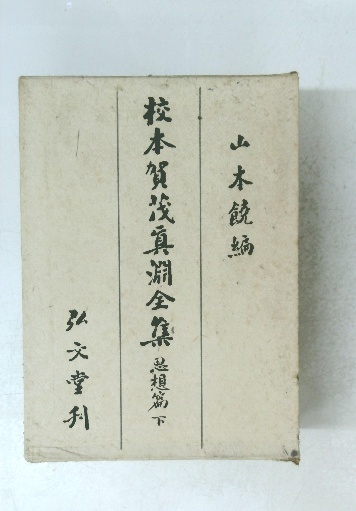 山本饒編
校本賀茂真淵全集 思想篇 下
弘文堂刊